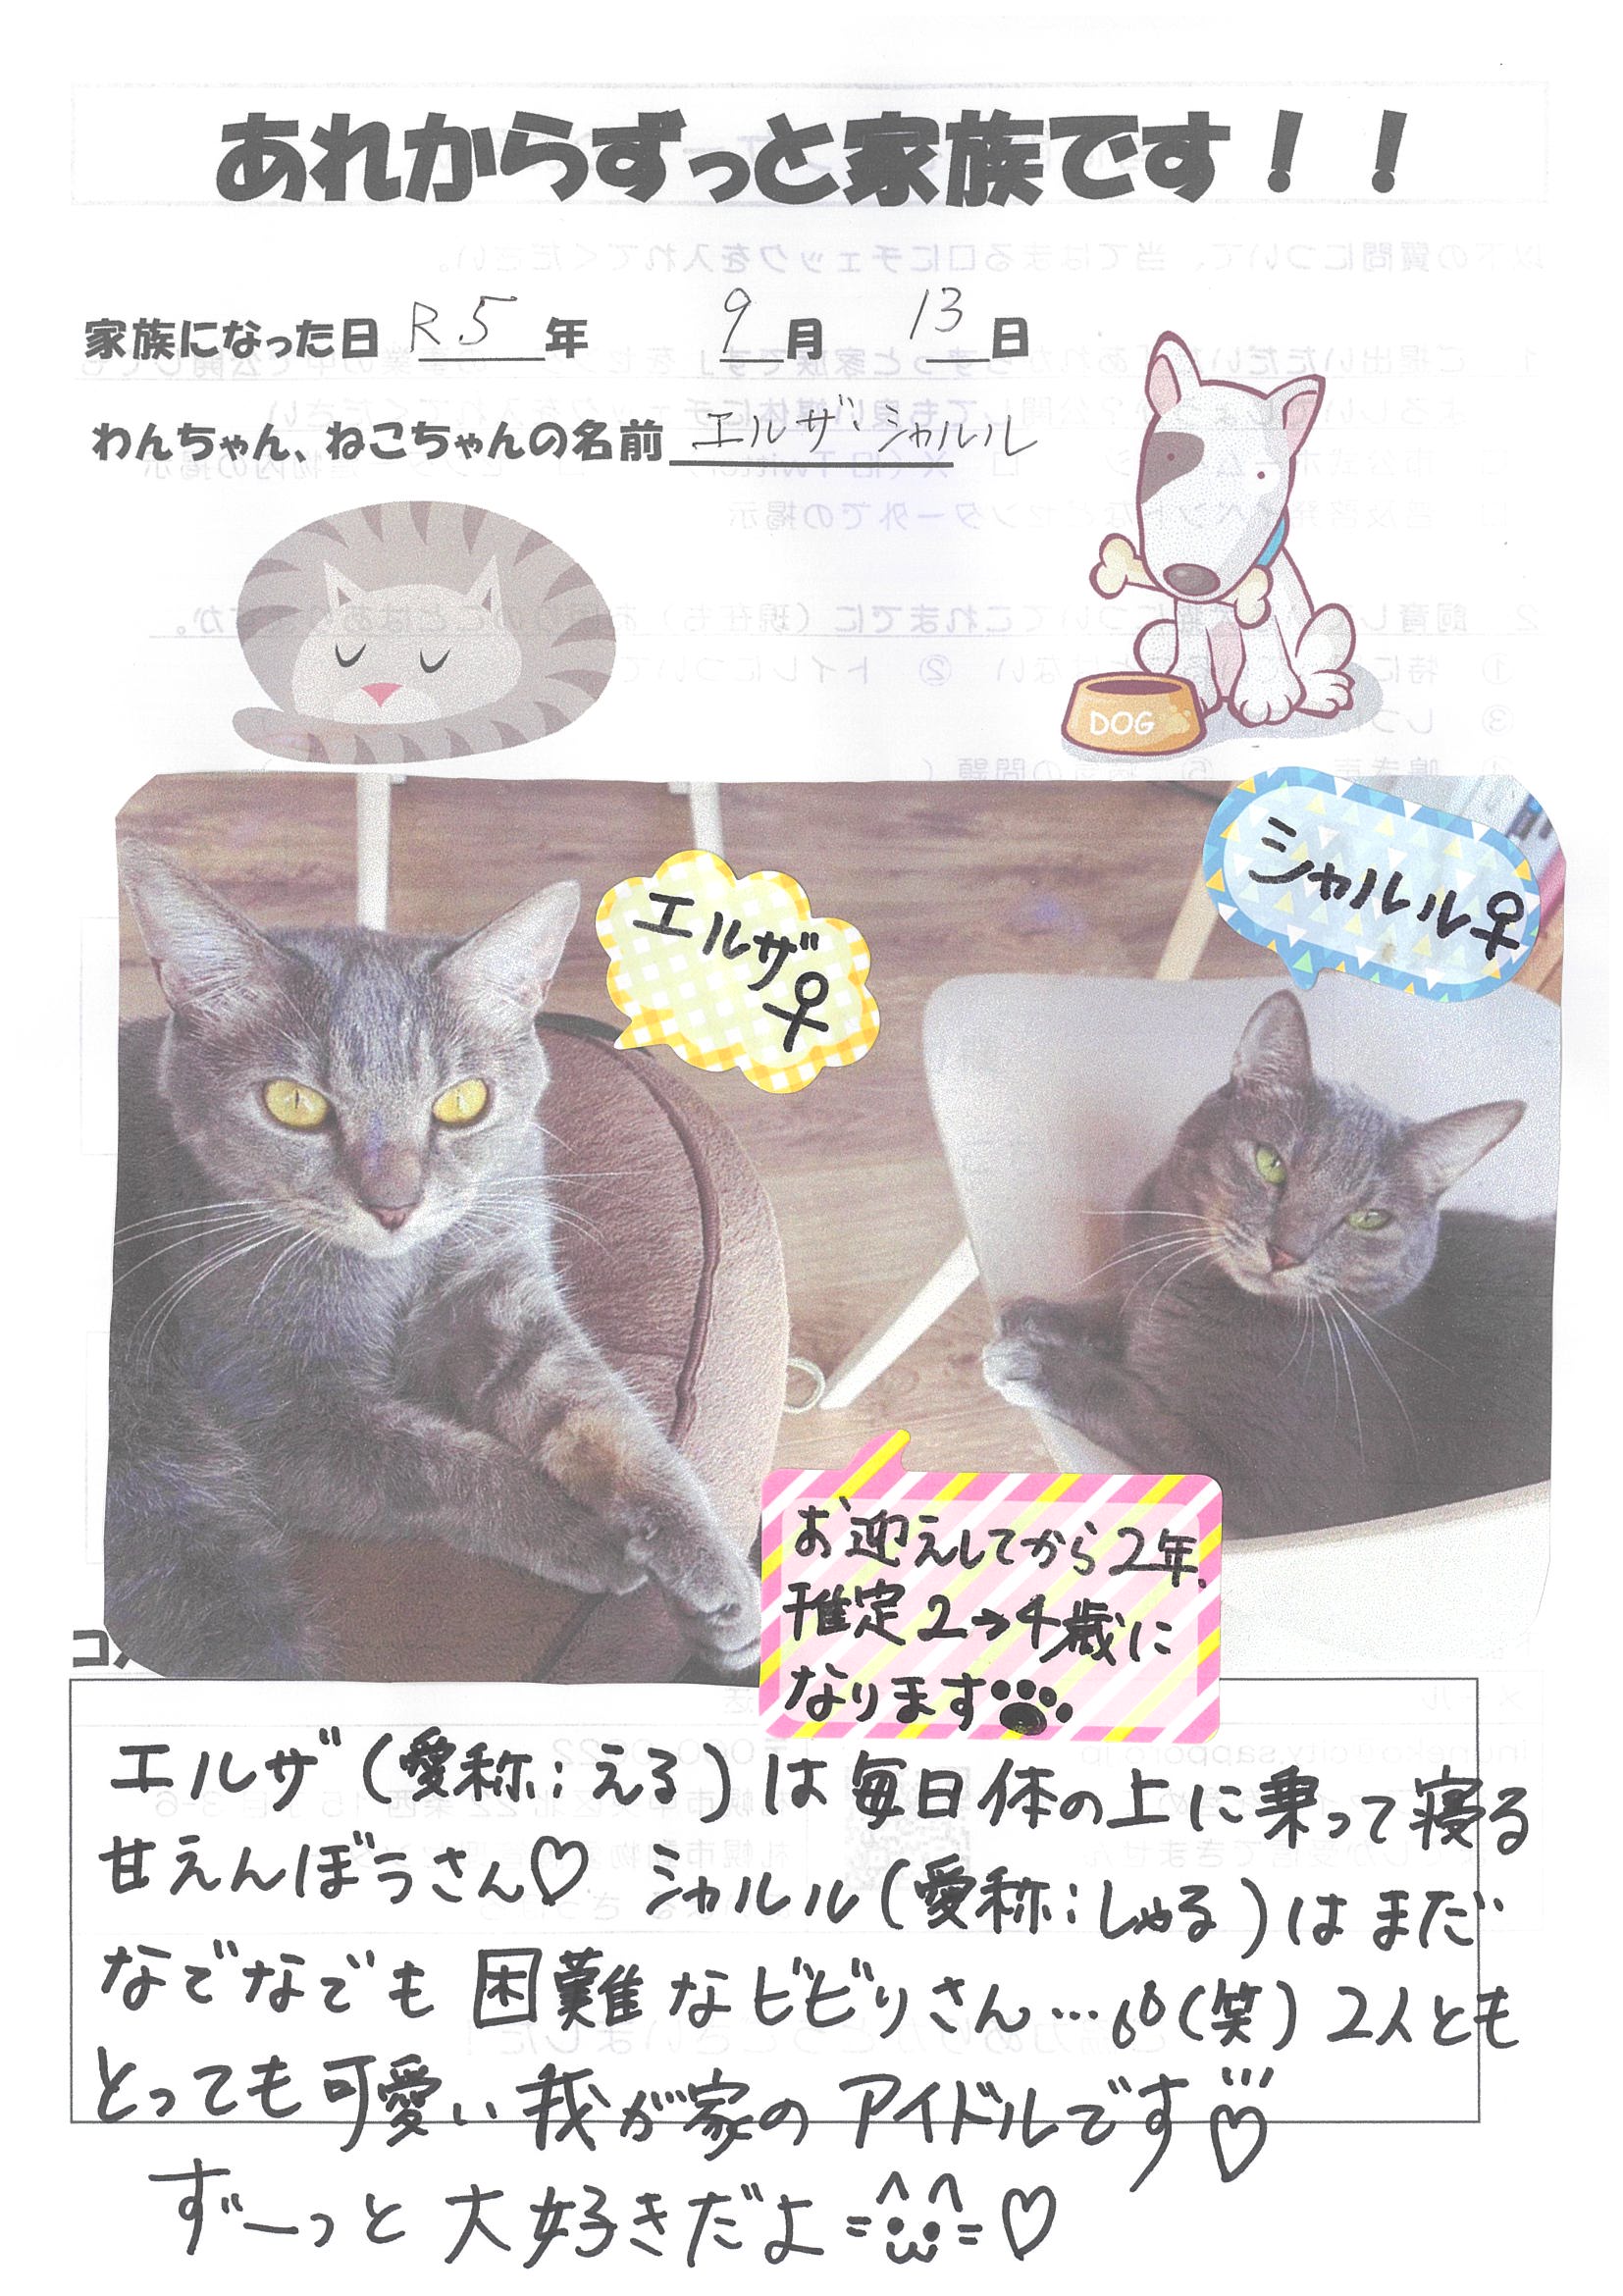 あれからずっと家族です！！
家族になった日 R5年 9月 13日
わんちゃん、ねこちゃんの名前 エルザ・シャルル
DOG
シャルル♀
エルザ♀
お迎えしてから2年.
推定2→4歳に
なります
コメ
エルザ(愛称:える)は毎日体の上に乗って寝る
甘えんぼうさん♡ シャルル(愛称:しゃる)はまだ
なでなでも困難なビビりさん…(笑)2人とも
とっても可愛い我が家のアイドルです♡
ずーっと大好きだよ♡